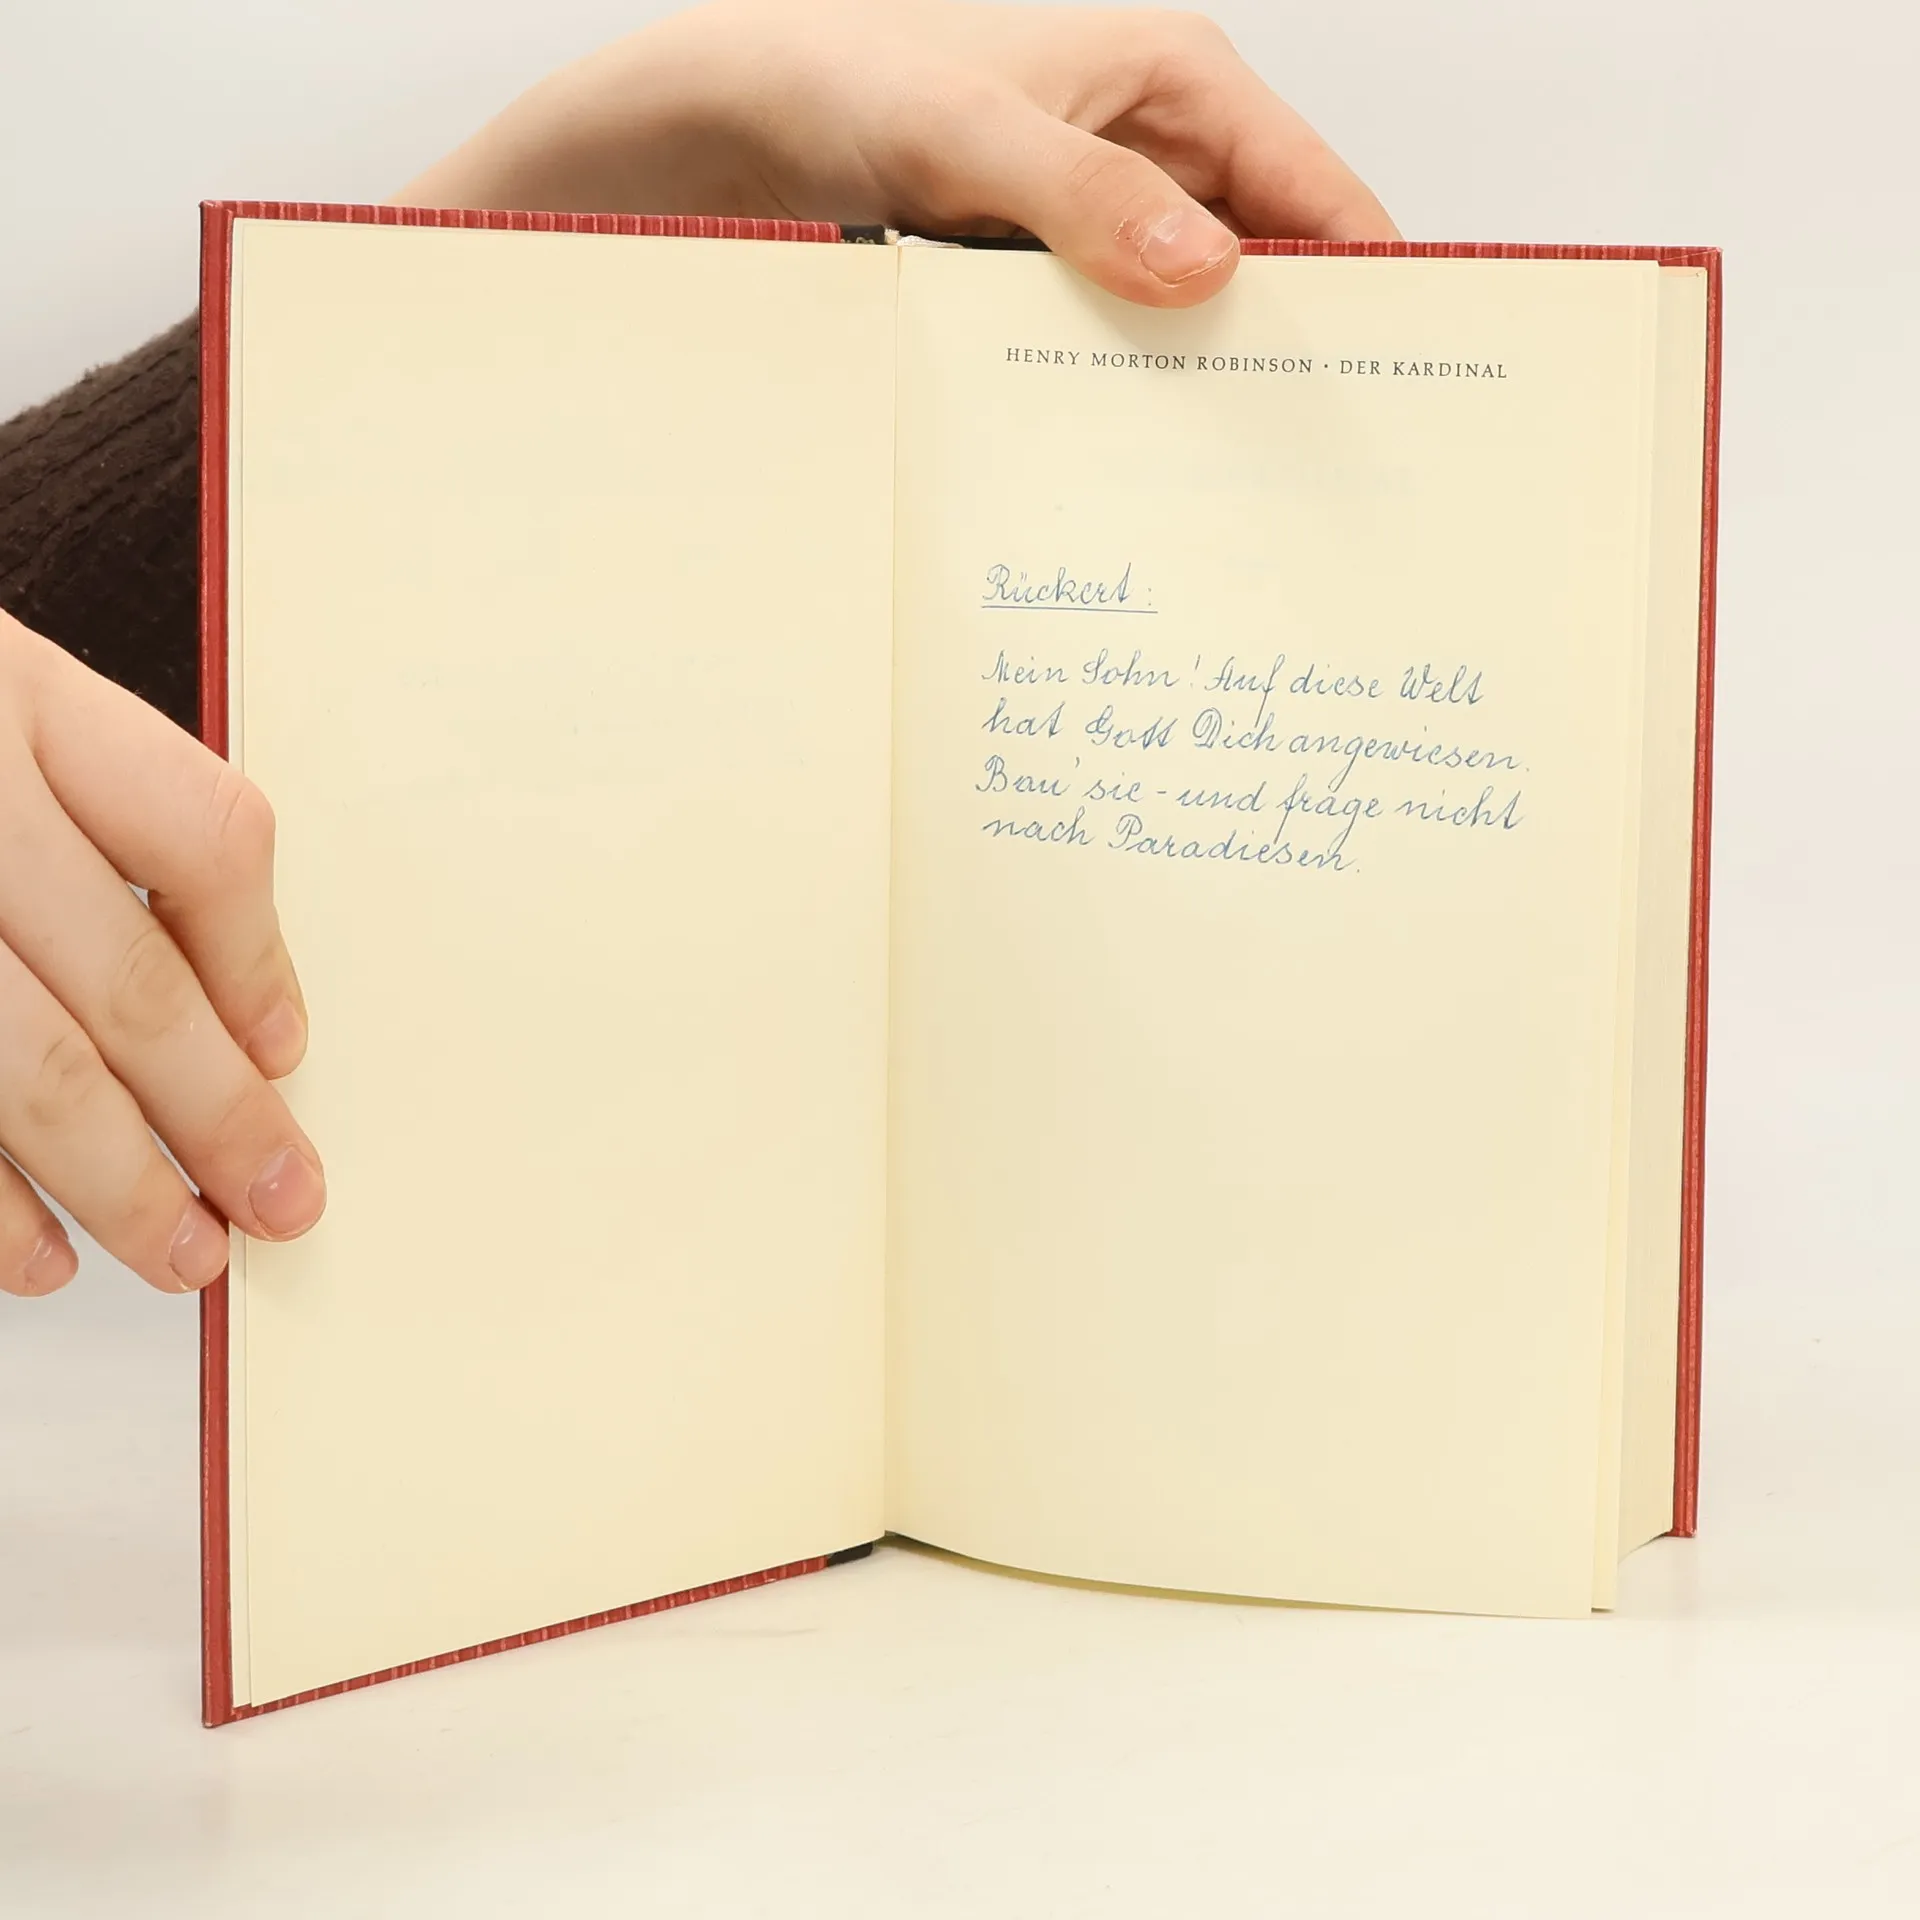 HENRY MORTON ROBINSON · DER KARDINAL
Rückert:
Mein Sohn! Auf diese Welt
hat Gott Dich angewiesen.
Bau' sie - und frage nicht
nach Paradiesen.